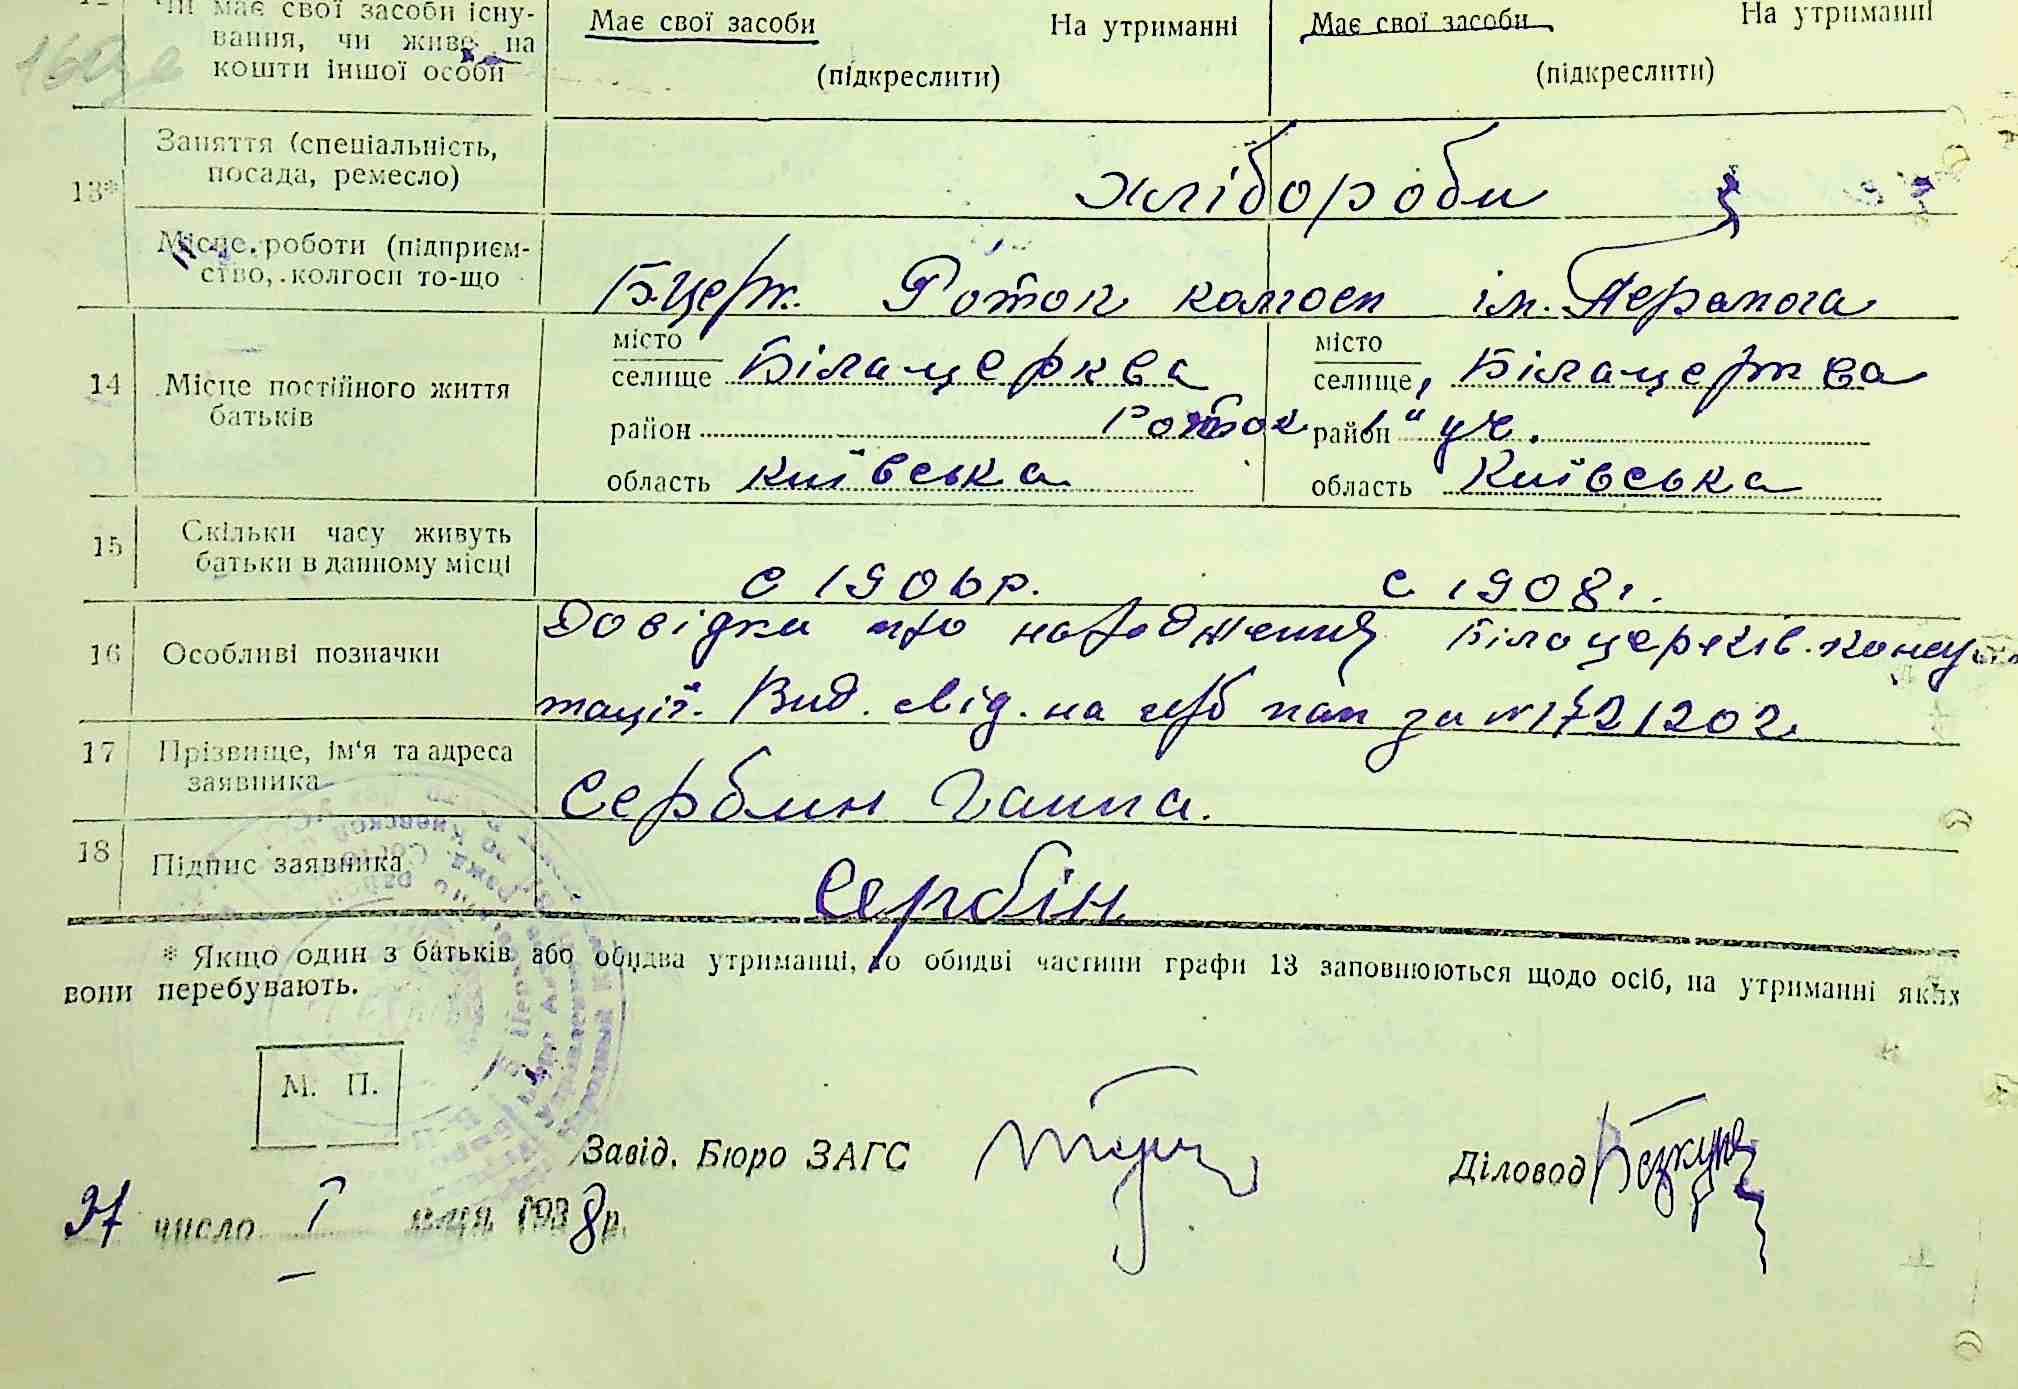 Чи має свої засоби існу-
вання, чи живе на
кошти іншої особи
Має свої засоби На утриманні Має свої засоби На утриманні
(підкреслити) (підкреслити)
13* Заняття (спеціальність,
посада, ремесло)
хлібороби
Місце роботи (підприєм-
ство, колгосп то-що
Б.церк. Роток колгосп ім. Перемога
14 Місце постійного життя
батьків
місто
селище Білацерква
район Роток
область Київська
місто
селище, Білацерква
район 1" уч.
область Київська
15 Скільки часу живуть
батьки в данному місці
с 1906р. с 1908г.
16 Особливі позначки
Довідка про народження Білоцерків.
тації. Вид. свід. на срб пап за №1721202
17 Прізвище, ім'я та адреса
заявника
Сербин Ганна.
18 Підпис заявника
Сербін
* Якщо один з батьків або обидва утриманці, то обидві частини графи 13 заповнюються щодо осіб, на утриманні яких
вони перебувають.
М. П.
Завід. Бюро ЗАГС Діловод
число I м-ця 1938р.